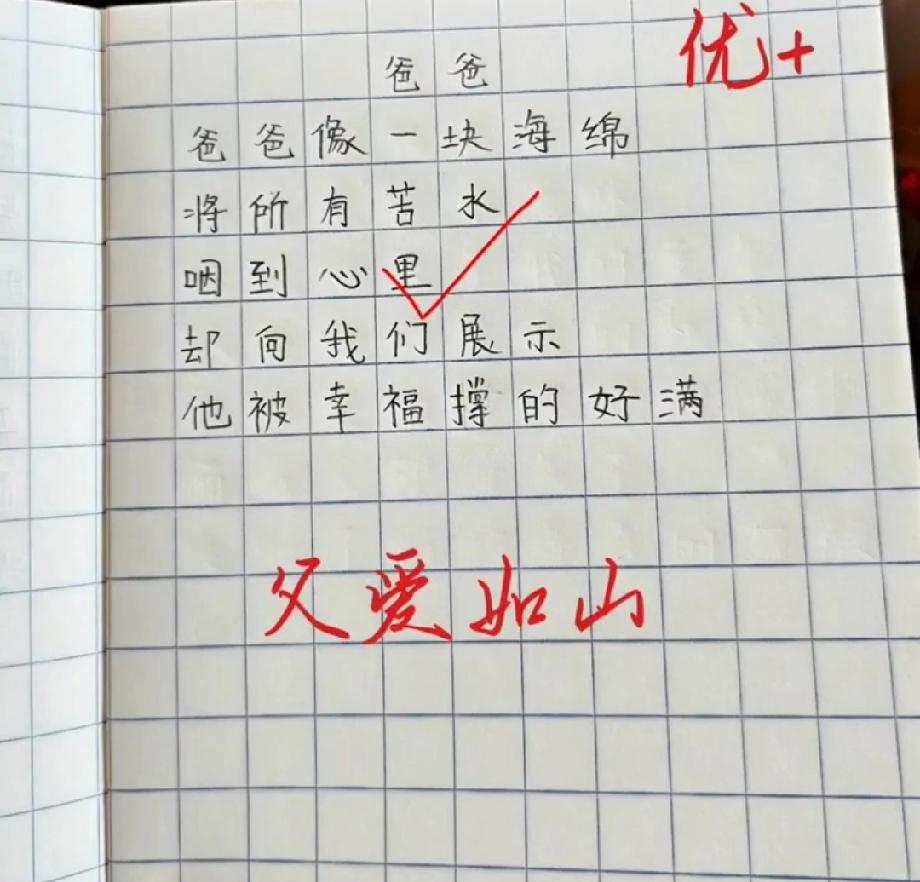 优+
爸爸
爸爸像一块海绵
将所有苦水
咽到心里
却向我们展示
他被幸福撑的好满
父爱如山